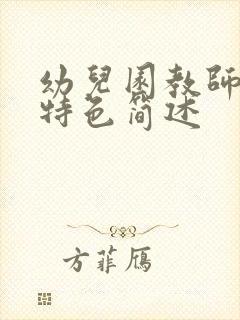 幼兒園教師
特色简述
方菲鴈